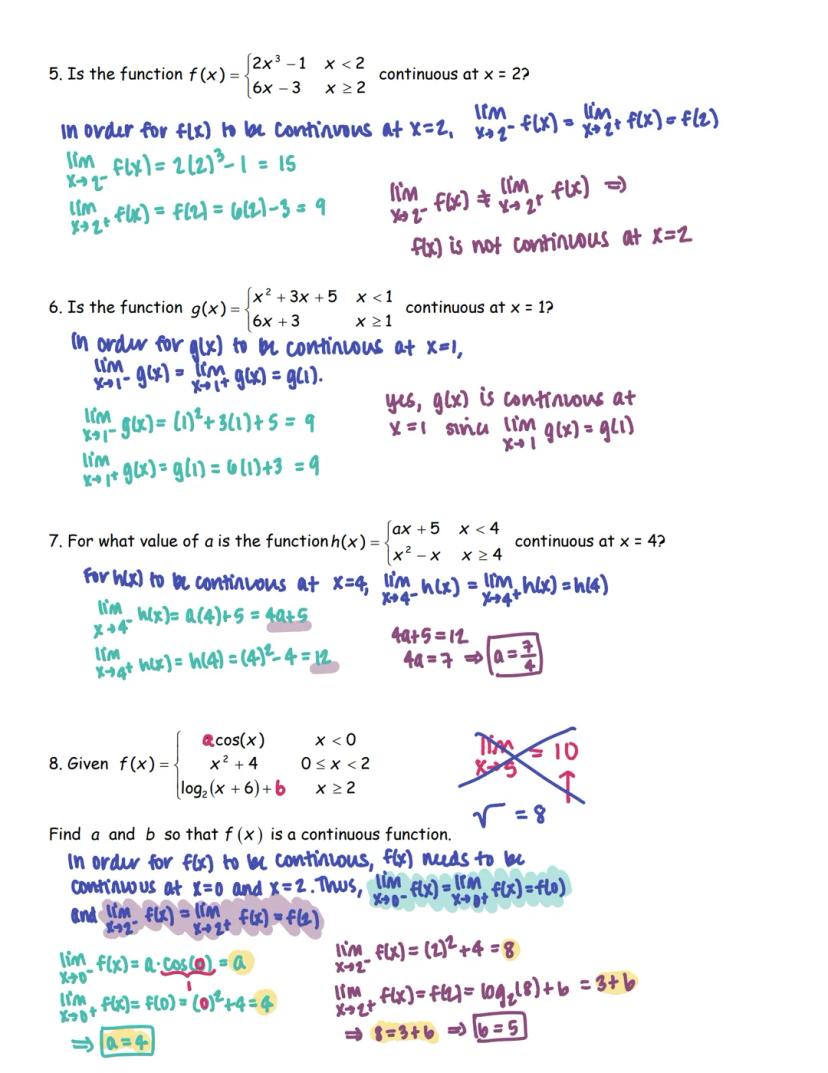 5. Is the function f(x) = { 2x³ − 1   x < 2
6x − 3   x ≥ 2   continuous at x = 2?
In order for f(x) to be continuous at x=2, lim x→2⁻ f(x) = lim x→2⁺ f(x) = f(2)
lim x→2⁻ f(x) = 2(2)³−1 = 15
lim x→2⁺ f(x) = f(2) = 6(2)−3 = 9
lim x→2⁻ f(x) ≠ lim x→2⁺ f(x) ⇒
f(x) is not continuous at x=2
6. Is the function g(x) = { x² + 3x + 5   x < 1
6x + 3   x ≥ 1   continuous at x = 1?
In order for g(x) to be continuous at x=1,
lim x→1⁻ g(x) = lim x→1⁺ g(x) = g(1).
lim x→1⁻ g(x) = (1)²+3(1)+5 = 9
lim x→1⁺ g(x) = g(1) = 6(1)+3 = 9
yes, g(x) is continuous at
x=1 since lim x→1 g(x) = g(1)
7. For what value of a is the function h(x) = { ax + 5   x < 4
x² − x   x ≥ 4   continuous at x = 4?
For h(x) to be continuous at x=4, lim x→4⁻ h(x) = lim x→4⁺ h(x) = h(4)
lim x→4⁻ h(x) = a(4)+5 = 4a+5
lim x→4⁺ h(x) = h(4) = (4)²−4 = 12
4a+5 = 12
4a = 7 ⇒ a = 7/4
8. Given f(x) = { a cos(x)   x < 0
x² + 4   0 ≤ x < 2
log₂(x + 6) + b   x ≥ 2
lim x→5 = 10
↑
√ = 8
Find a and b so that f(x) is a continuous function.
In order for f(x) to be continuous, f(x) needs to be
continuous at x=0 and x=2. Thus, lim x→0⁻ f(x) = lim x→0⁺ f(x) = f(0)
and lim x→2⁻ f(x) = lim x→2⁺ f(x) = f(2)
lim x→0⁻ f(x) = a·cos(0) = a
1
lim x→0⁺ f(x) = f(0) = (0)²+4 = 4
⇒ a = 4
lim x→2⁻ f(x) = (2)²+4 = 8
lim x→2⁺ f(x) = f(2) = log₂(8)+b = 3+b
⇒ 8 = 3+b ⇒ b = 5